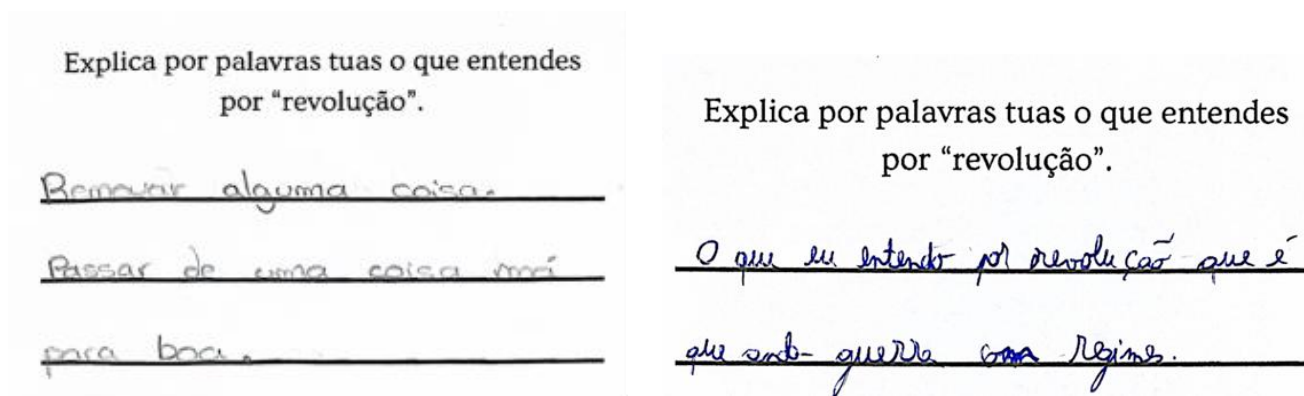 Explica por palavras tuas o que entendes
por “revolução”.
Renovar alguma coisa.
Passar de uma coisa má
para boa.
Explica por palavras tuas o que entendes
por “revolução”.
O que eu entendo por revolução que é
guerra regimes.